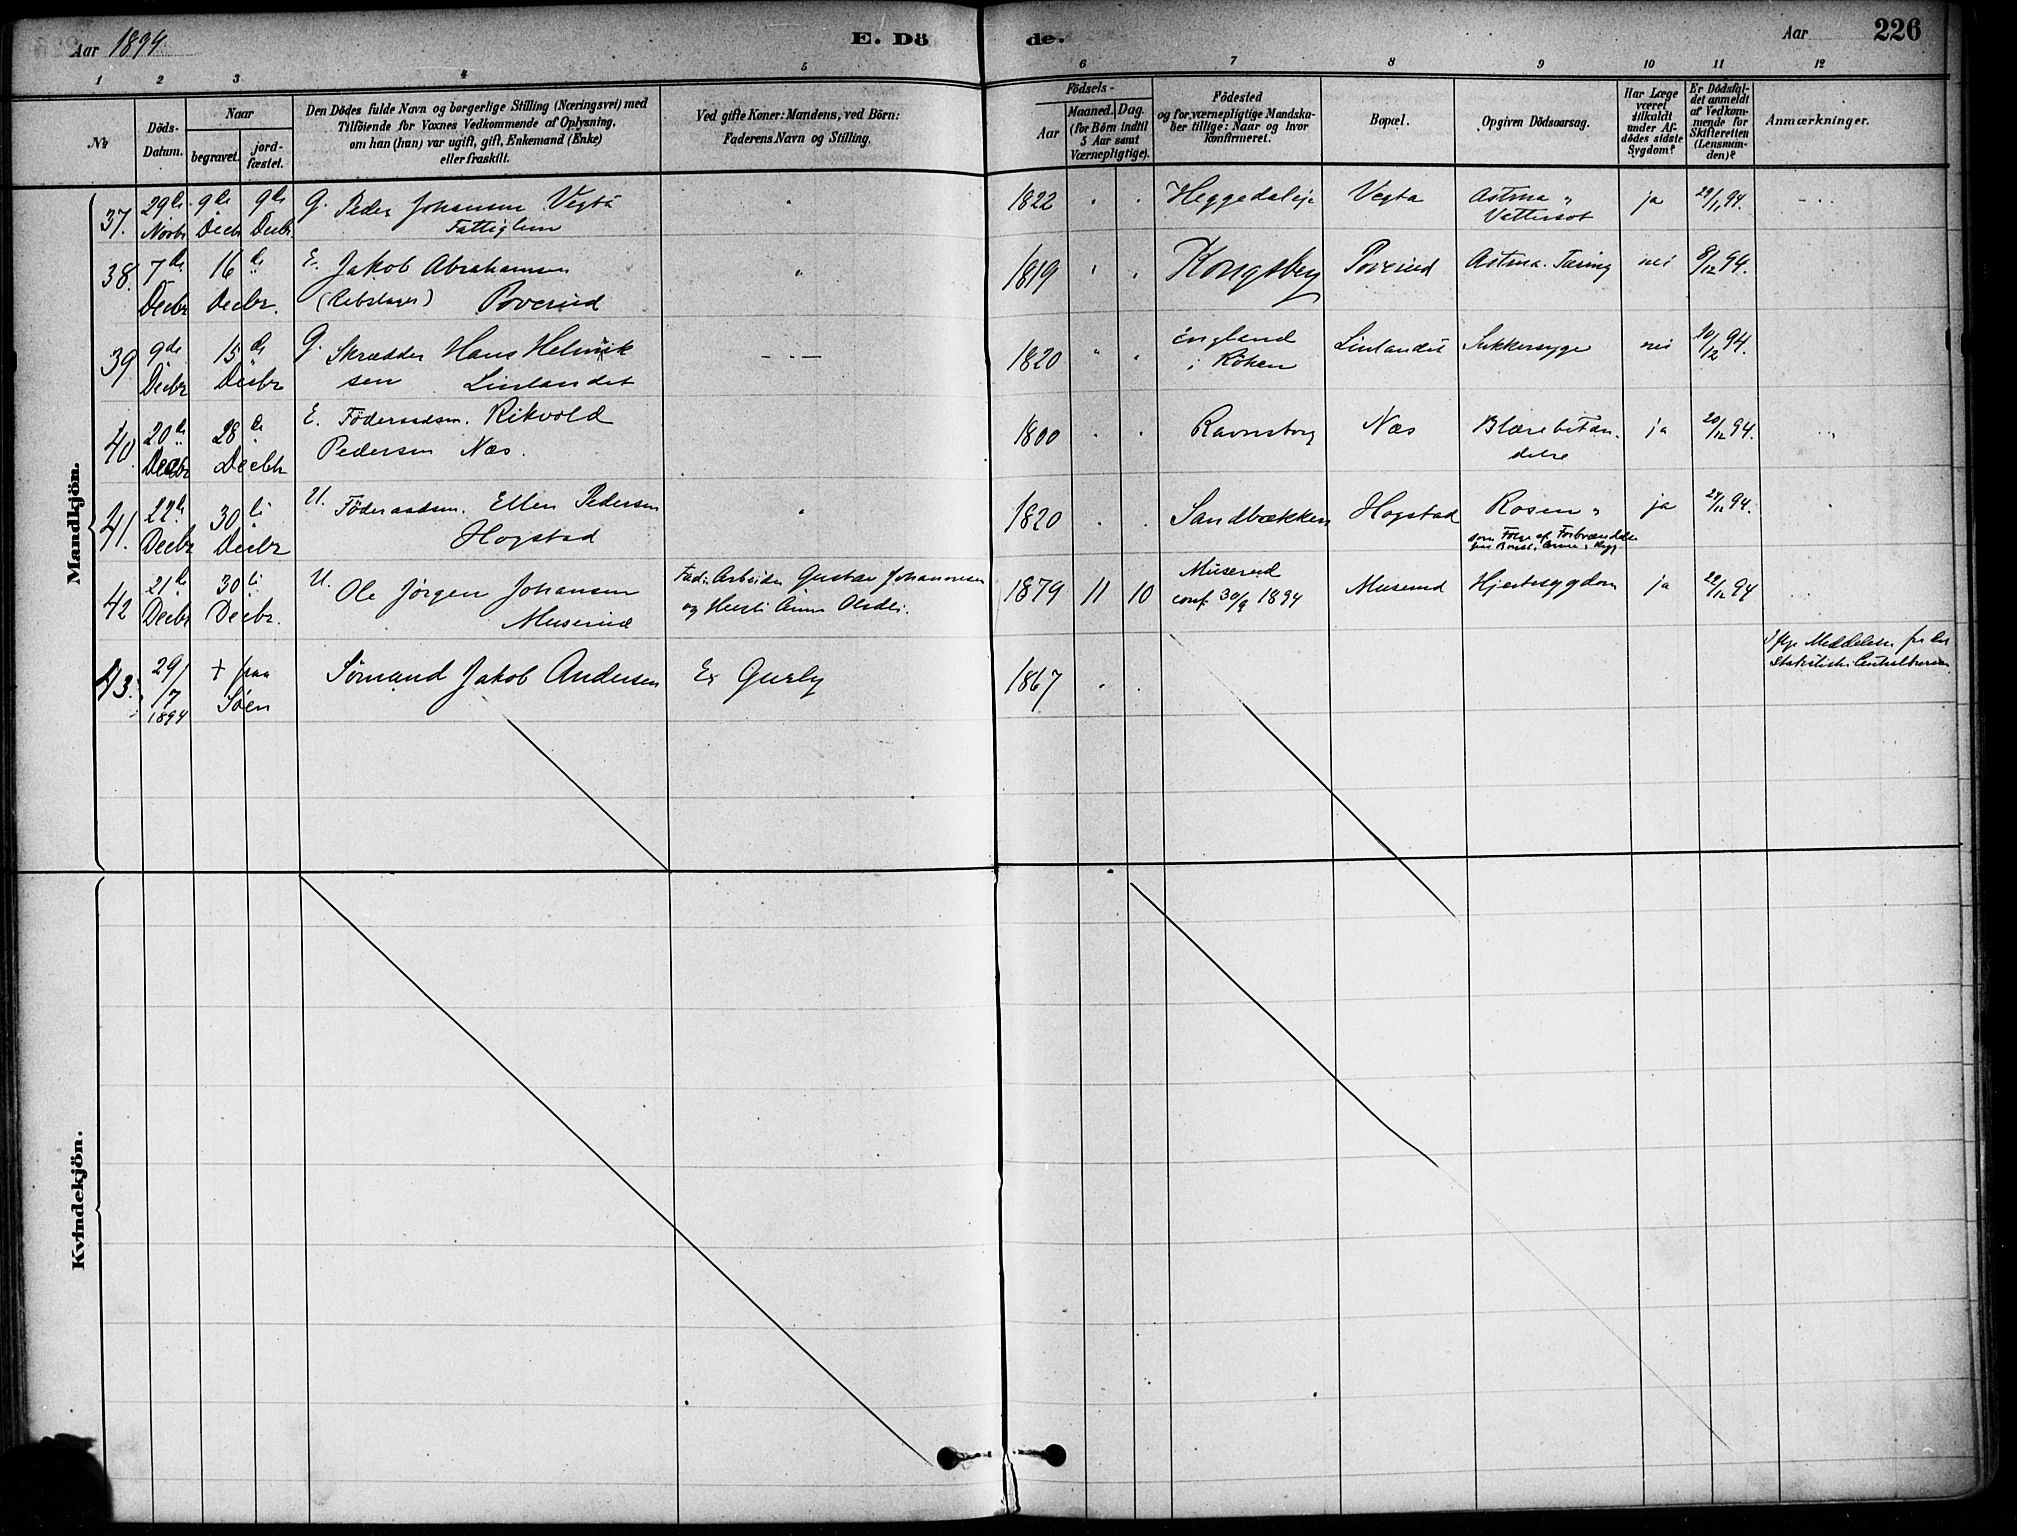 Aar 1894
E. Dö
de.
Aar
226
1 2 3 4 5 6 7 8 9 10 11 12
No
Döds-
Datum.
Naar
begravet.
jord-
fæstet.
Den Dödes fulde Navn og borgerlige Stilling (Næringsvei) med
Tilföiende for Voxnes Vedkommende af Oplysning,
om han (hun) var ugift, gift, Enkemand (Enke)
eller fraskilt.
Ved gifte Koner: Mandens, ved Börn:
Faderens Navn og Stilling.
Födsels-
Aar
Maaned. Dag.
(for Börn indtil
5 Aar samt
Værnepligtige).
Födested
og for værnepligtige Mandska-
ber tillige: Naar og hvor
konfirmeret.
Bopæl.
Opgiven Dödsaarsag.
Har Læge
været
tilkaldt
under Af-
dödes sidste
Sygdom?
Er Dödsfal-
det anmeldt
af Vedkom-
mende for
Skifteretten
(Lensman-
den)?
Anmærkninger.
Mandkjön.
37. 29de 9de 9de G. Peder Johansen Vegta " 1822 " " Heggedaleje Vegta Astma " ja 29/11 94.
Novbr Decbr Decbr Fattiglem Vattersot
38. 7de 16de E. Jakob Abrahamsen " 1819 " " Kongsberg Poverud Astma. Tæring nei 8/12 94.
Decbr Decbr. (Rebslager) Poverud
39 9de 15de G. Skrædder Hans Helmik 1820 " " England Linlandet Sukkersyge nei 10/12 94.
Decbr Decbr sen Linlandet i Röken
40. 20de 28de E. Föderaadsm. Rikvold 1800 " " Ravnsborg Næs Blærebetæn- ja 20/12 94.
Decbr Decbr Pedersen Næs. delse
41. 22de 30te U. Föderaadsm. Ellen Pedersen " 1820 " " Sandbækken Hogstad Rosen " ja 24/12 94.
Decbr Decbr Hogstad som Følge af Forbrændelse
42 21de 30te U. Ole Jörgen Johansen Fad: Arbeider Gustav Johannesen 1879 11 10 Muserud Muserud Hjertesygdom ja 22/12 94
Decbr Decbr. Muserud og Anne Olsdtr. conf. 30/9 1894
43. 29/7 1894 + paa Søen Sömand Jakob Andersen Gurby 1867 " " Meddelelse fra det
statistiske Centralbureau
Kvindekjön.